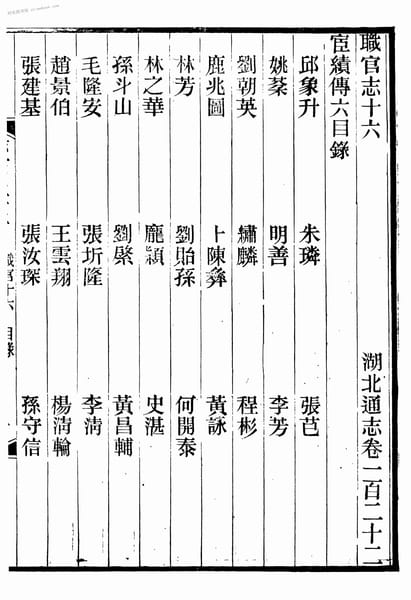 職官志十六 湖北通志卷一百二十二
宦績傳六目錄
邱象升 朱璘 張芑
姚棻 明善 李芳
劉朝英 繡麟 程彬
鹿兆圖 卜陳彝 黃詠
林芳 劉貽孫 何開泰
林之華 龐頴 史湛
孫斗山 劉棨 黃昌輔
毛隆安 張圻隆 李淸
趙景伯 王雲翔 楊淸輪
張建基 張汝琛 孫守信
職官十六 目錄